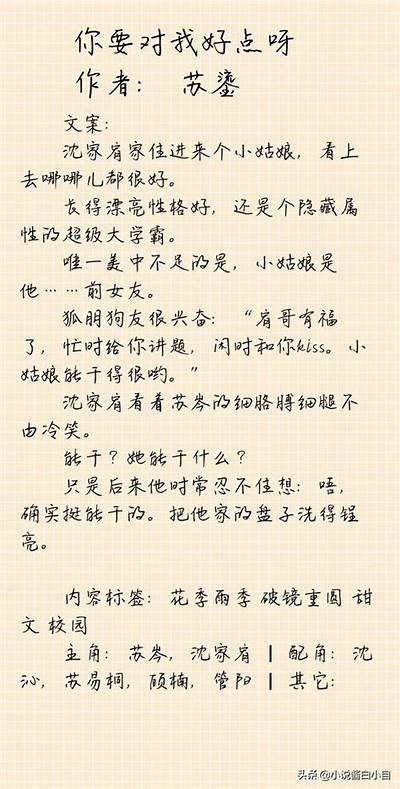 你要对我好点呀
作者： 苏鎏
文案：
沈家肴家住进来个小姑娘，看上
去哪哪儿都很好。
长得漂亮性格好，还是个隐藏属
性的超级大学霸。
唯一美中不足的是，小姑娘是
他……前女友。
狐朋狗友很兴奋：“肴哥有福
了，忙时给你讲题，闲时和你kiss。小
姑娘能干得很哟。”
沈家肴看看苏岑的细胳膊细腿不
由冷笑。
能干？她能干什么？
只是后来他时常忍不住想：唔，
确实挺能干的。把他家的盘子洗得锃
亮。
内容标签：花季雨季 破镜重圆 甜
文 校园
主角：苏岑，沈家肴 ┃ 配角：沈
沁，苏易桐，顾楠，管阳 ┃ 其它：
头条 @小说酱白小自